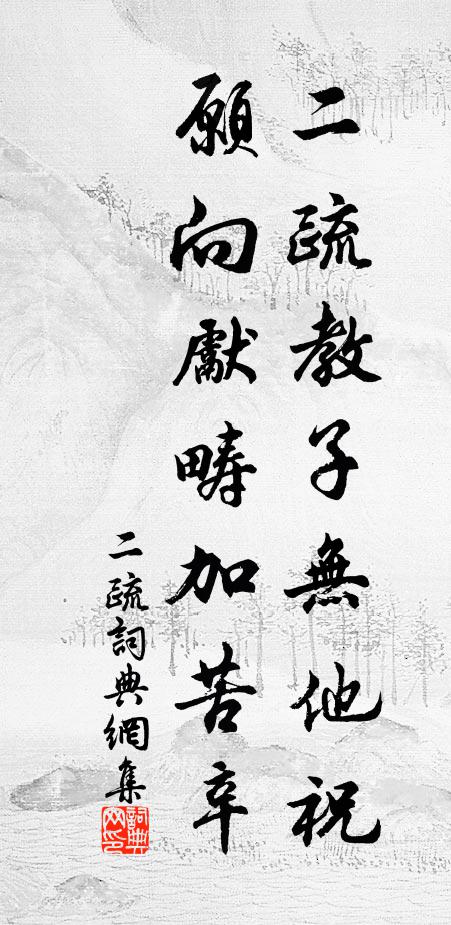 二疏教子無他祝
願向獻畴加苦辛
二疏詞典網集
詞典網印